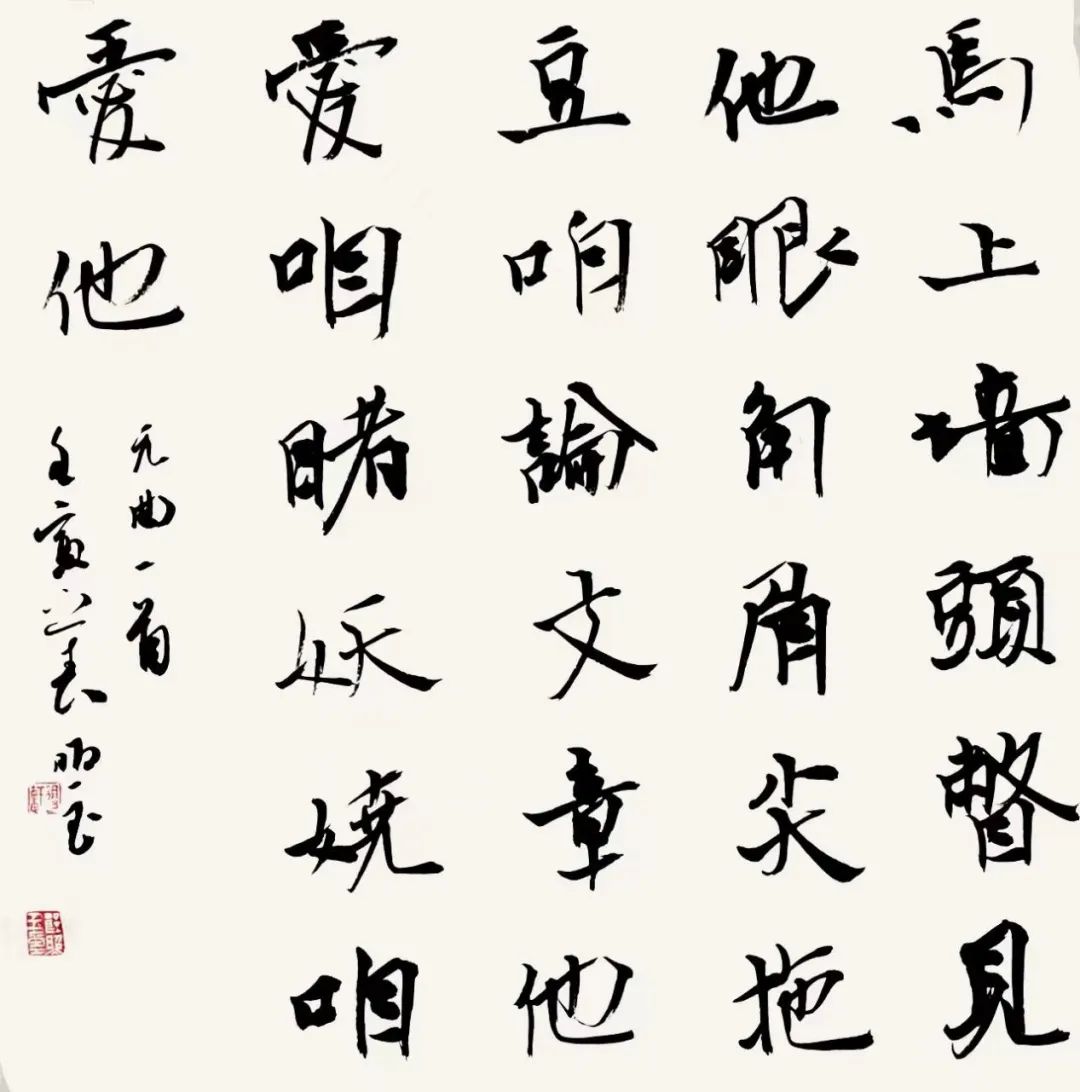 馬上墙頭瞥見
他眼角眉尖拖
豆咱論文章他
愛咱睹妖娆咱
愛他
元曲一首
壬寅春明玉